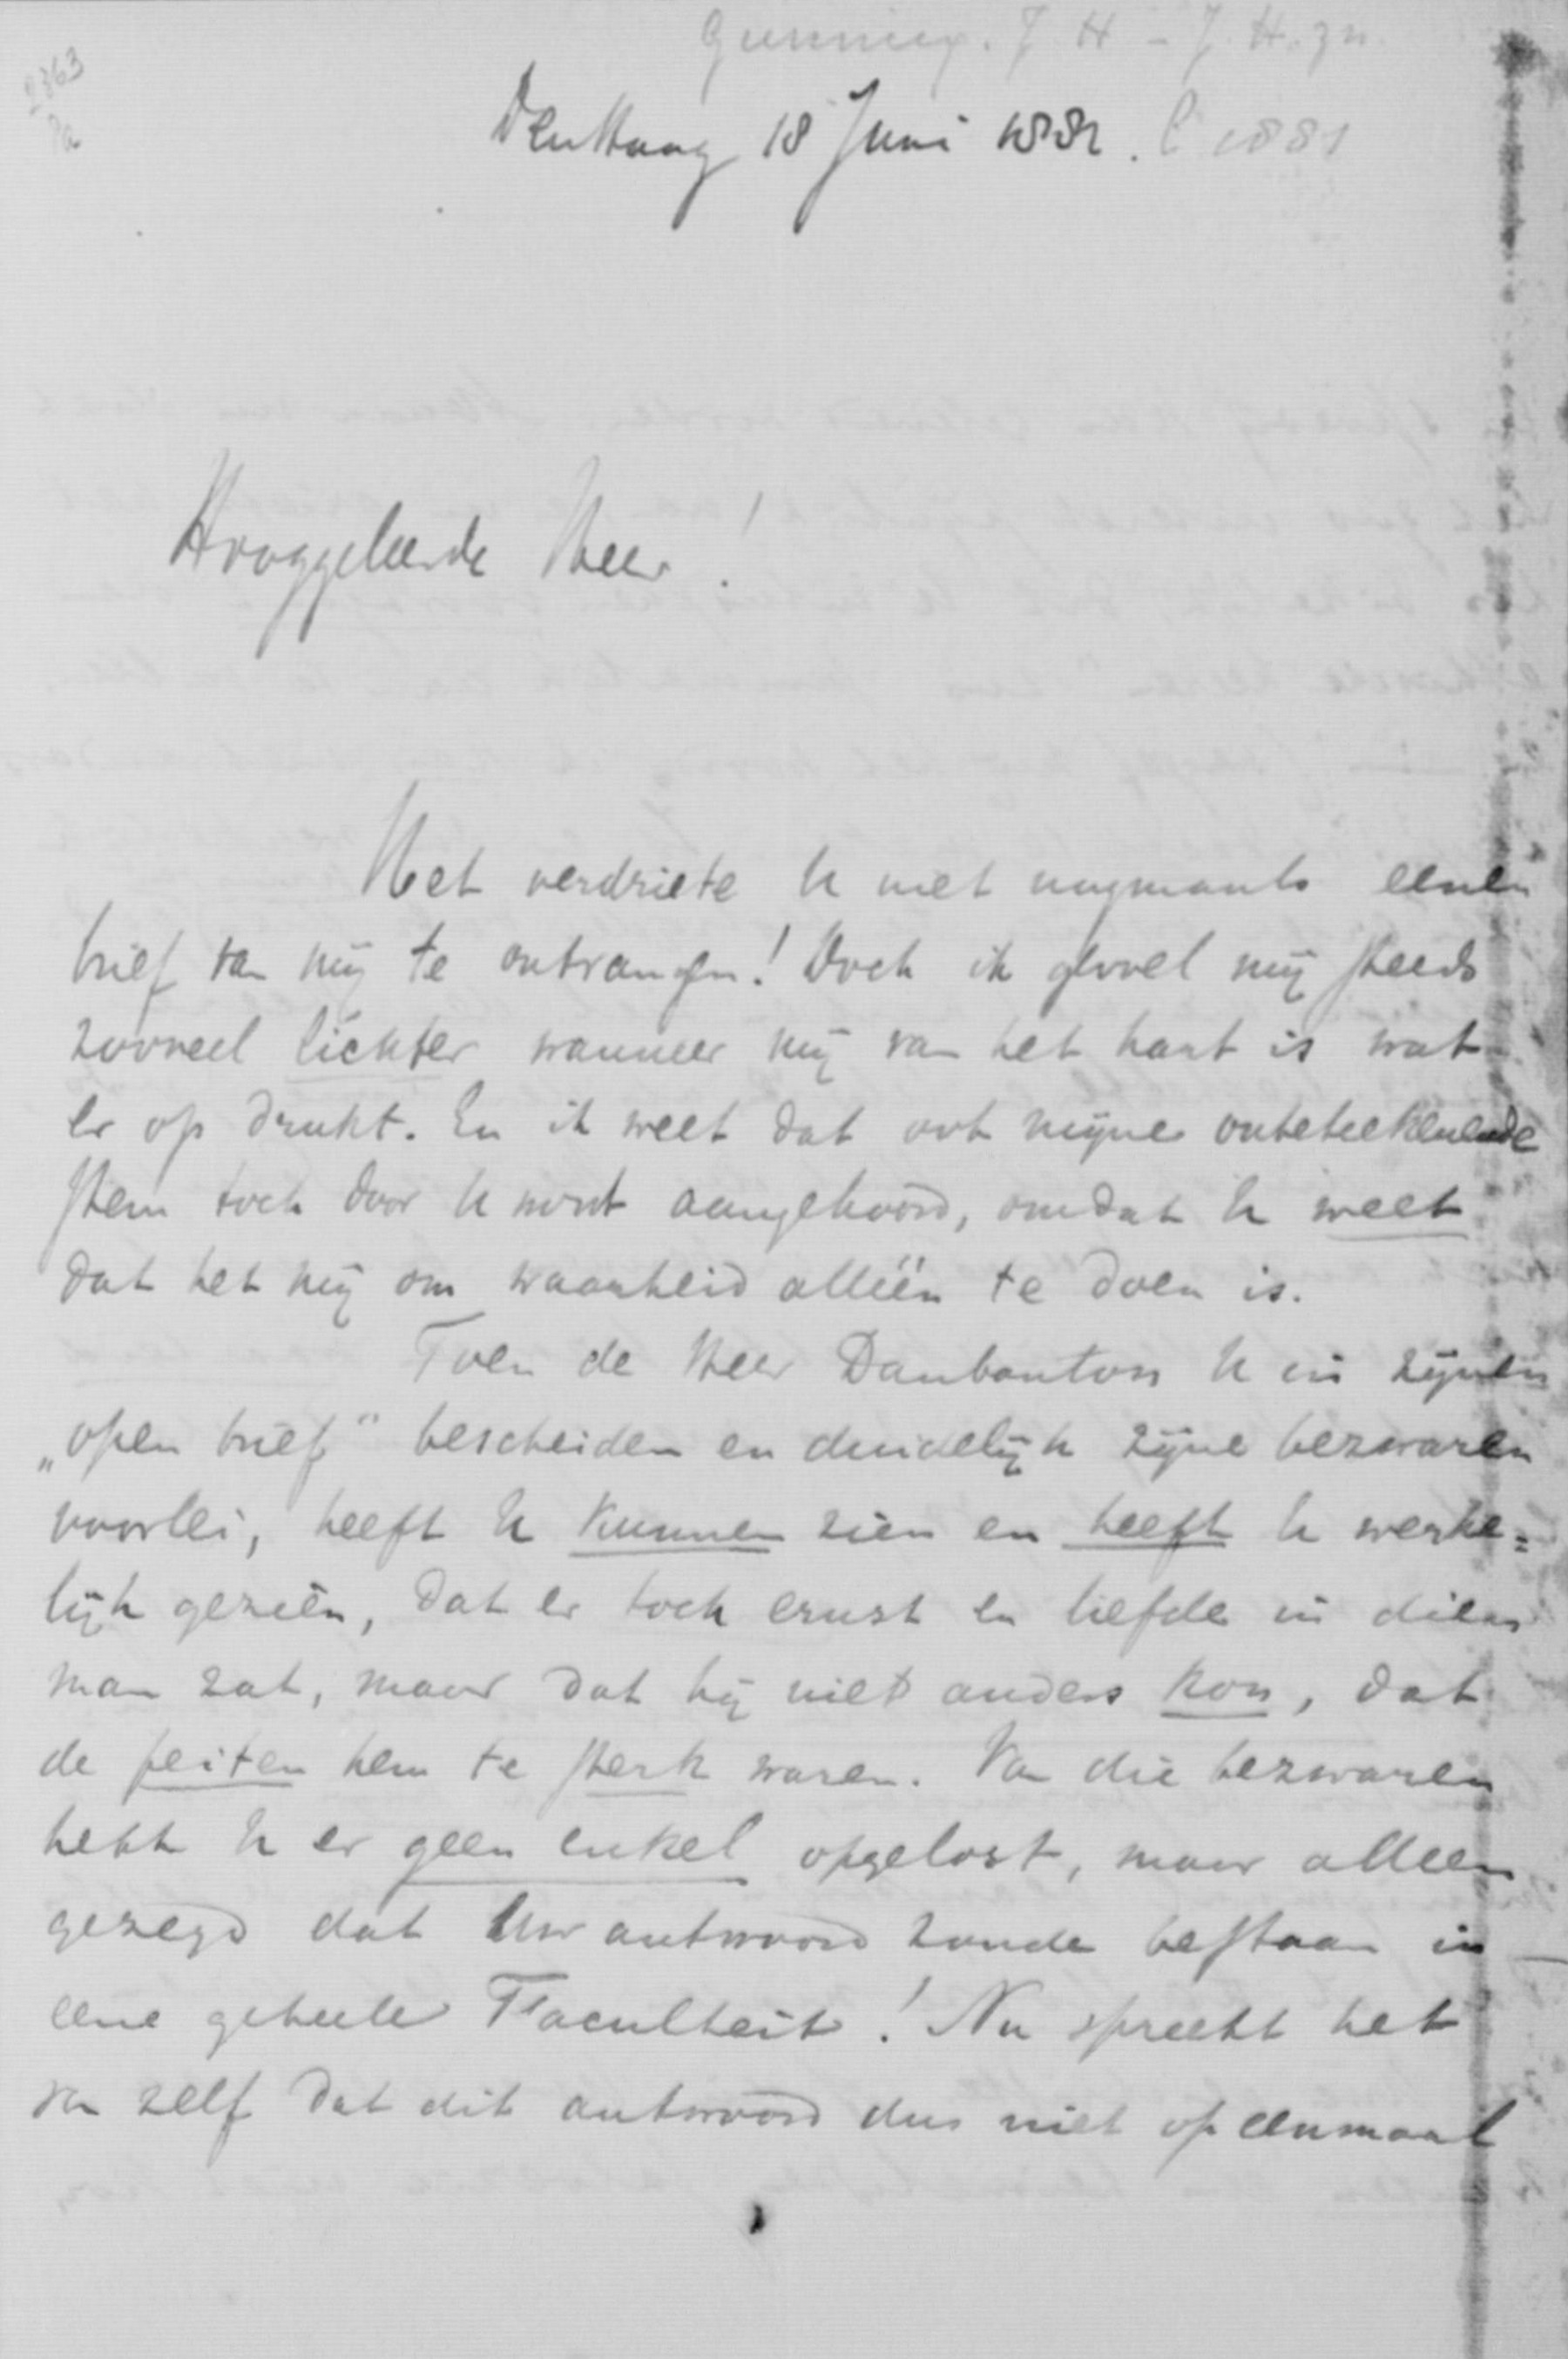 Gunning. J. H - J. H. zn.
2363
Den Haag 18 Juni 1882. 1881
Hooggeleerde Heer!
Het verdriete U niet nogmaals eenen
brief van mij te ontvangen! Doch ik gevoel mij steeds
zooveel lichter wanneer mij van het hart is wat
er op drukt. En ik weet dat ook mijne onbeteekenende
stem toch door U wordt aangehoord, omdat U weet
dat het mij om waarheid alléén te doen is.
Toen de Heer Daubanton U in zijnen
„open brief" bescheiden en duidelijk zijne bezwaren
voorlei, heeft U kunnen zien en heeft U werke=
lijk gezien, dat er toch ernst en liefde in dien
man zat, maar dat hij niet anders kon, dat
de feiten hem te sterk waren. Van die bezwaren
hebt U er geen enkel opgelost, maar alleen
gezegd dat Uw antwoord zoude bestaan in
eene geheele Faculteit! Nu spreekt het
van zelf dat dit antwoord dus niet op eenmaal